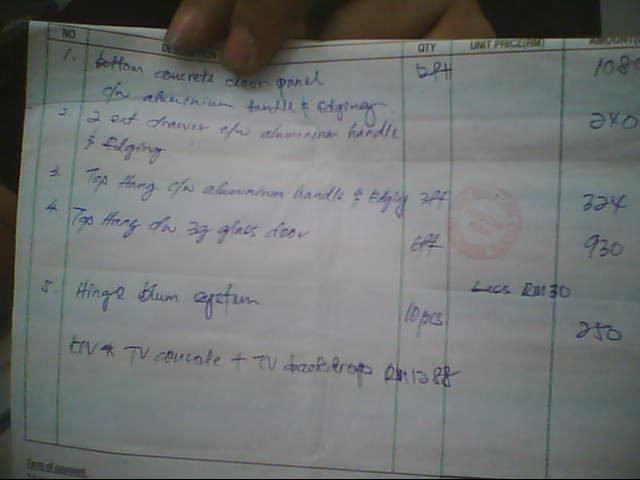 NO DESCRIPTION QTY UNIT PRICE(RM) AMOUNT
1. bottom concrete door panel 1080
c/w aluminium handle & Edging
2. 2 set drawer c/w aluminium handle 240
& Edging
3. Top Hang c/w aluminium handle & Edging 3ft 324
4. Top Hang c/w 3g glass door 6ft 930
Less RM30
5. Hinge blum system 10pcs 250
TV console + TV backdrop RM1288
Term of payment